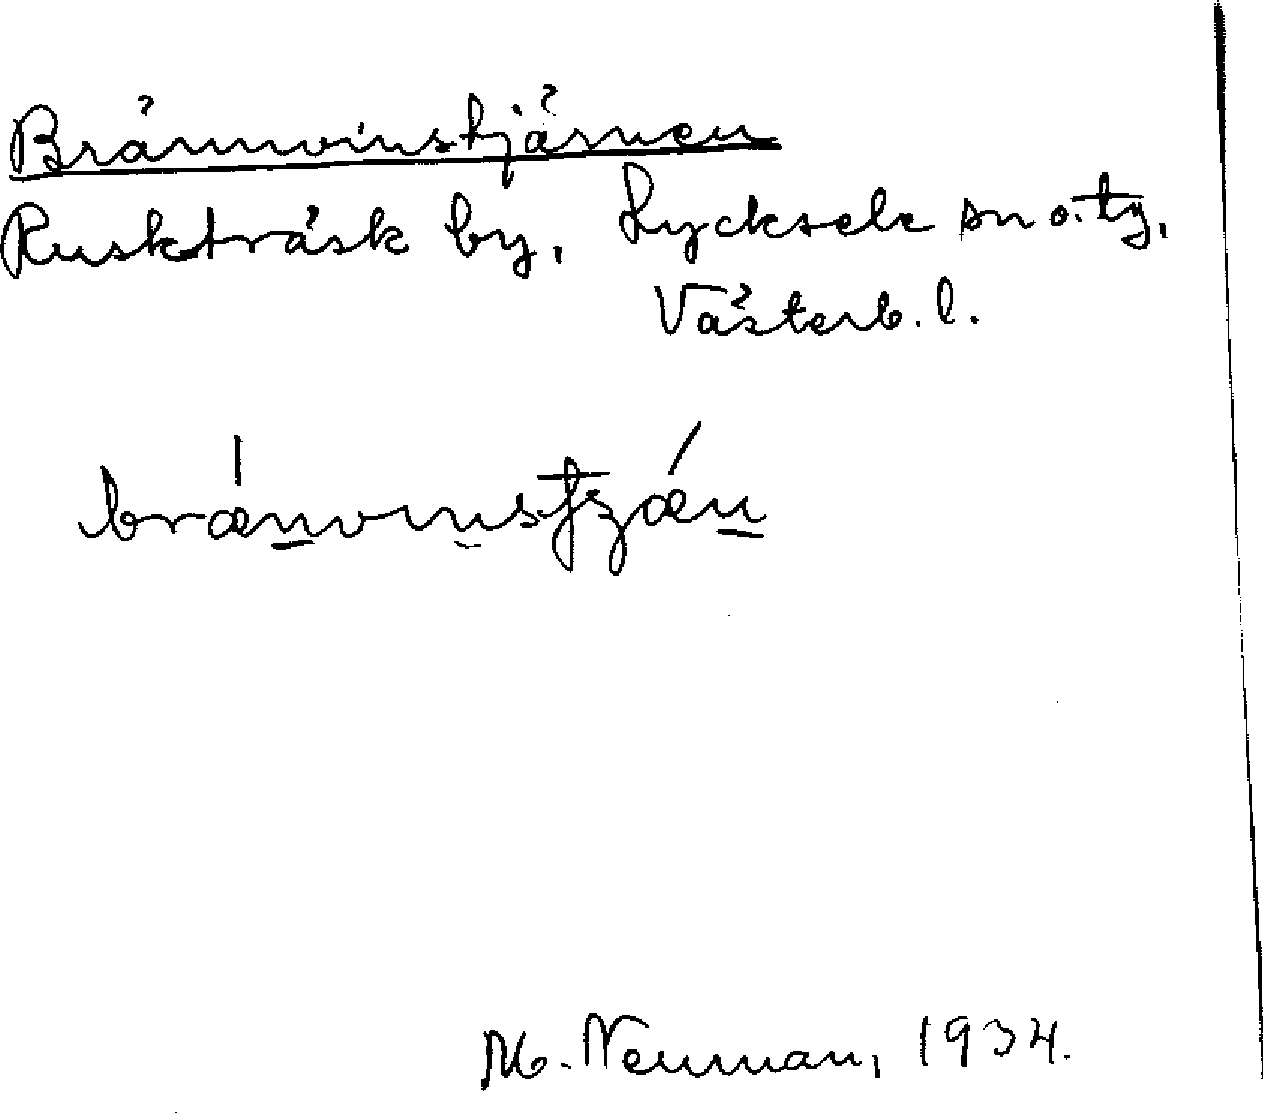 Brännvinstjärnen
Ruskträsk by, Lycksele sn o. tg,
Västerb. l.
brænvinstjzæn
M. Neuman, 1934.